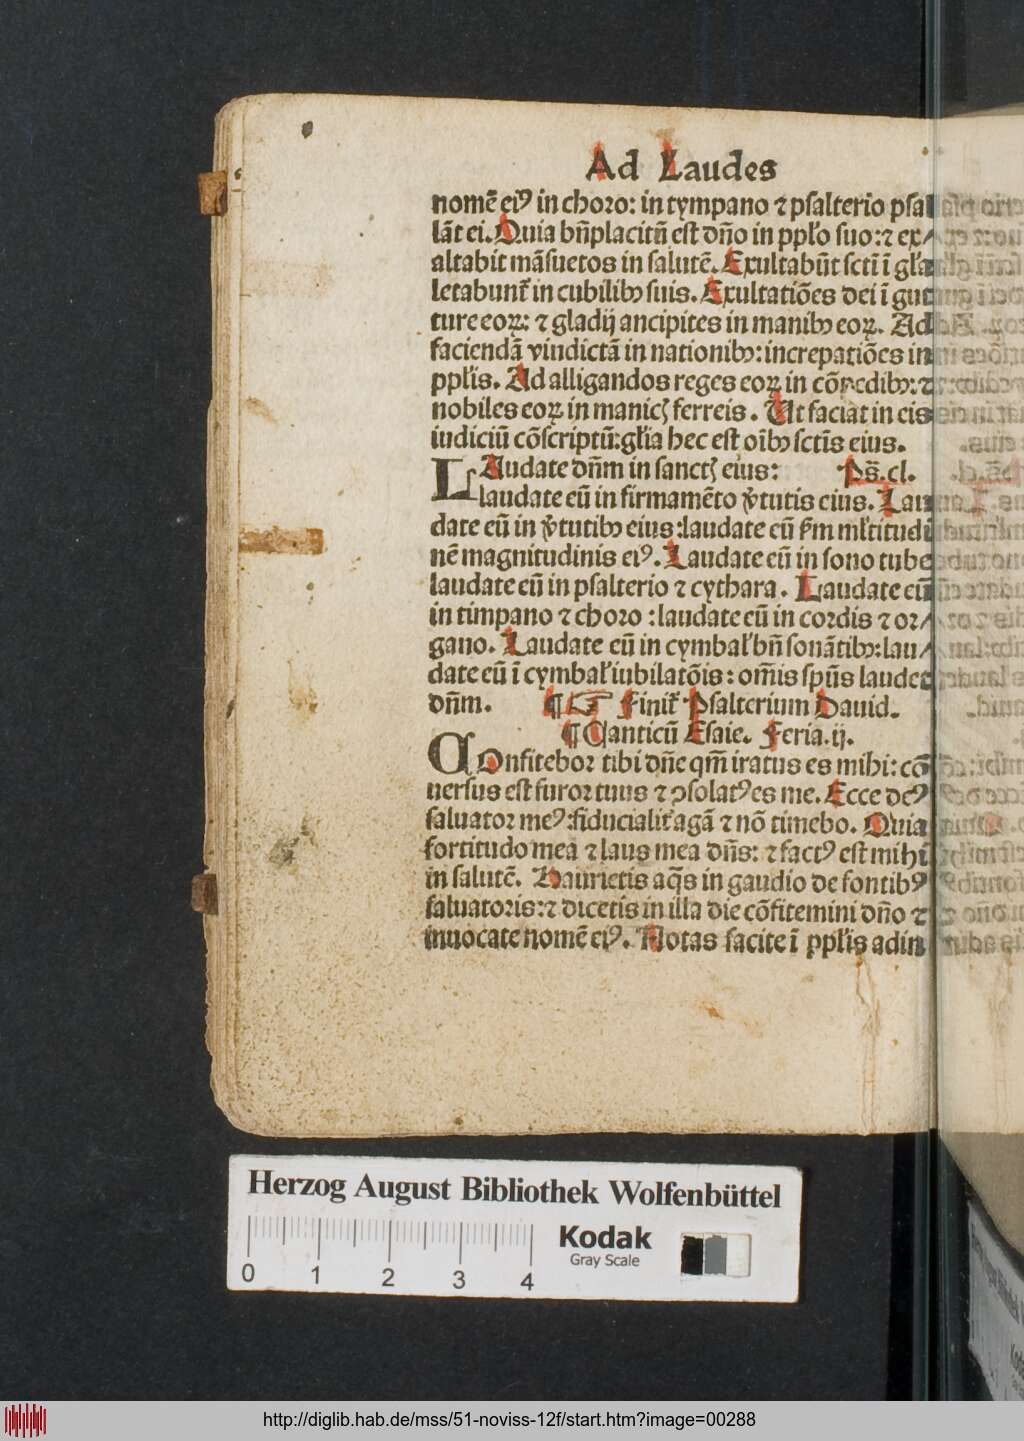 Ad Laudes
nomē eiꝰ in choro: in tympano ⁊ psalterio psal
lāt ei. Quia bn̄placitū est dn̄o in pplo suo: ⁊ ex⸗
altabit māsuetos in salutē. Exultabūt sctī ī gła
letabunt̄ in cubilibꝫ suis. Exultatiōes dei ī gut
ture eoꝝ: ⁊ gladij ancipites in manibꝫ eoꝝ. Ad
faciendā vindictā in nationibꝫ: increpatiōes in
ppłis. Ad alligandos reges eoꝝ in cōpedibꝫ: ⁊
nobiles eoꝝ in manicꝭ ferreis. Ut faciat in eis
iudiciū cōscriptū: głia hec est oībꝫ sctīs eius.
LAudate dn̄m in sanctꝭ eius: Ps̄. cl.
laudate eū in firmamēto v̓tutis eius. Lau
date eū in v̓tutibꝫ eius: laudate eū ẜm młtitudi
nē magnitudinis eiꝰ. Laudate eū in sono tube
laudate eū in psalterio ⁊ cythara. Laudate eū
in timpano ⁊ choro: laudate eū in cordis ⁊ or⸗
gano. Laudate eū in cymbał bn̄ sonātibꝫ: lau⸗
date eū ī cymbał iubilatōis: om̄is sp̄us laudet
dn̄m. ¶ ☞ Finit̄ Psalterium Dauid.
¶ Canticū Esaie. Feria. ij.
COnfitebor tibi dn̄e qm̄ iratus es mihi: cō
uersus est furor tuus ⁊ ꝯsolatꝰ es me. Ecce deꝰ
saluator meꝰ: fiducialit̄ agā ⁊ nō timebo. Quia
fortitudo mea ⁊ laus mea dn̄s: ⁊ factꝰ est mihi
in salutē. Haurietis aq̄s in gaudio de fontibꝰ
saluatoris: ⁊ dicetis in illa die cōfitemini dn̄o ⁊
inuocate nomē eiꝰ. Notas facite ī ppłis adin
Herzog August Bibliothek Wolfenbüttel
Kodak
Gray Scale
0 1 2 3 4
http://diglib.hab.de/mss/51-noviss-12f/start.htm?image=00288